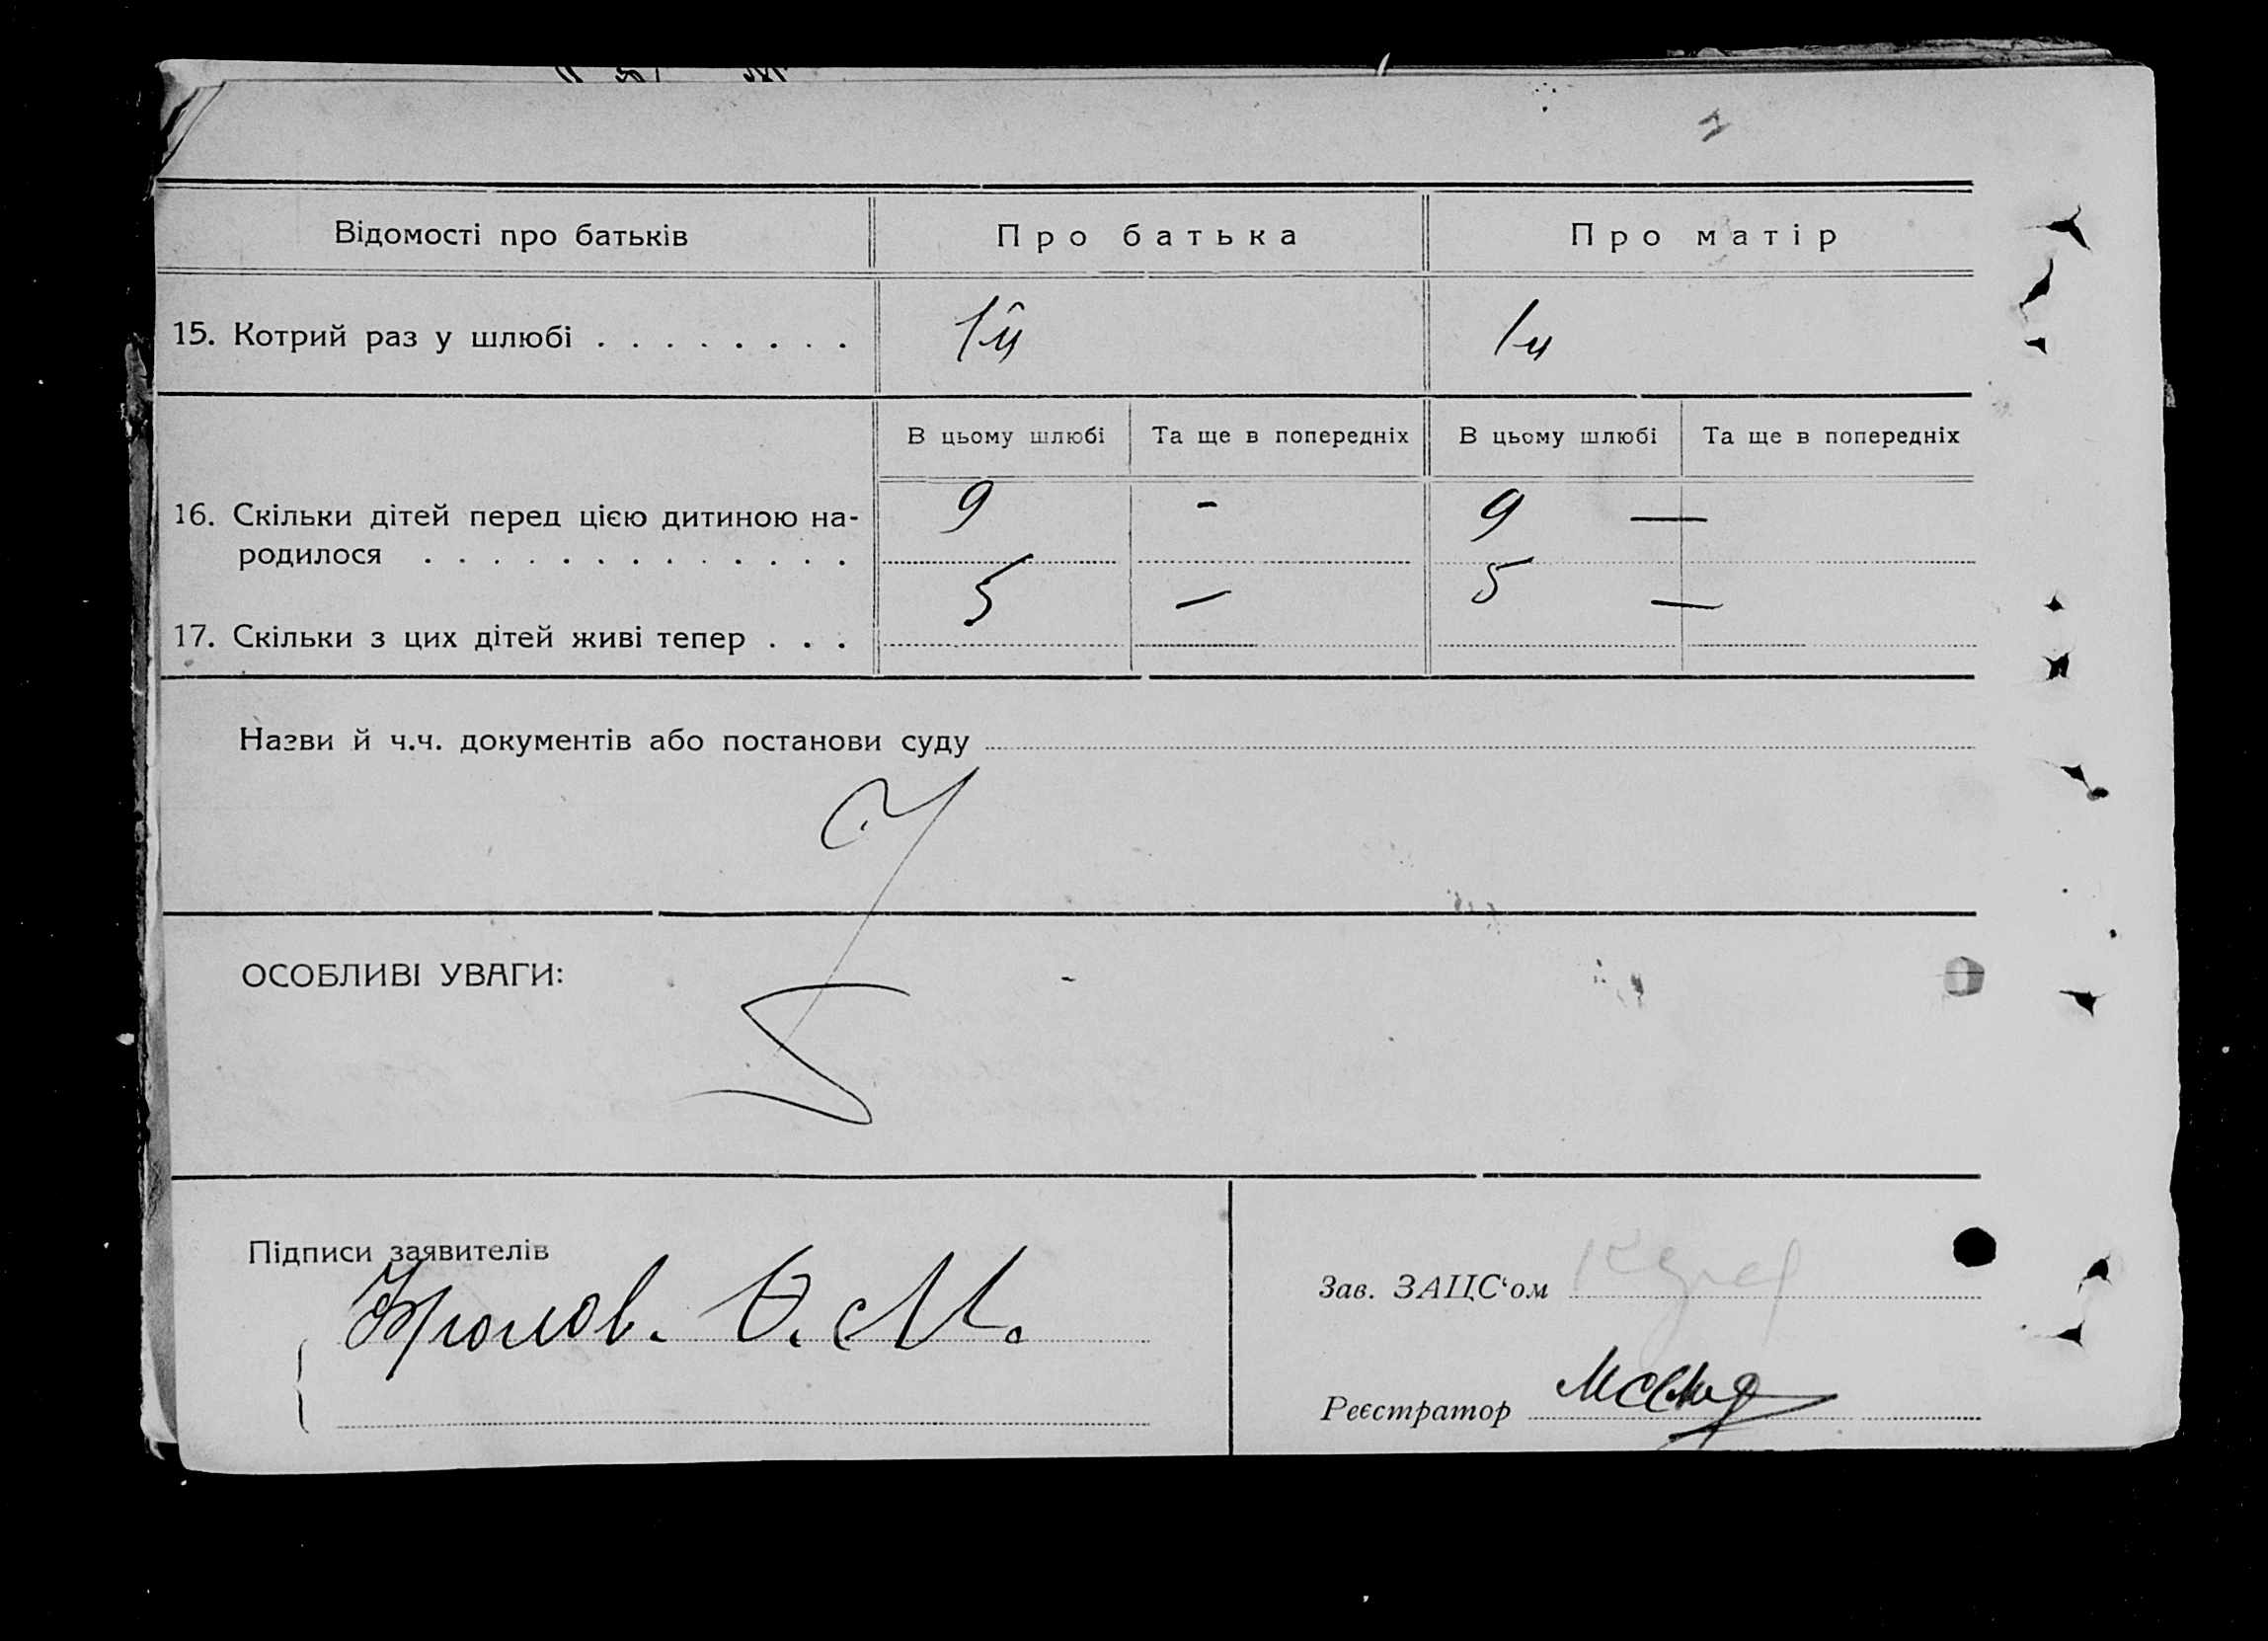 Відомості про батьків Про батька Про матір
15. Котрий раз у шлюбі . . . . . . . . 1й 1й
В цьому шлюбі Та ще в попередніх В цьому шлюбі Та ще в попередніх
16. Скільки дітей перед цією дитиною на- 9 - 9 —
родилося . . . . . . . . . . . . .
17. Скільки з цих дітей живі тепер . . . 5 — 5 —
Назви й ч.ч. документів або постанови суду
ОСОБЛИВІ УВАГИ:
Підписи заявителів
Зав. ЗАЦС‘ом
Реєстратор